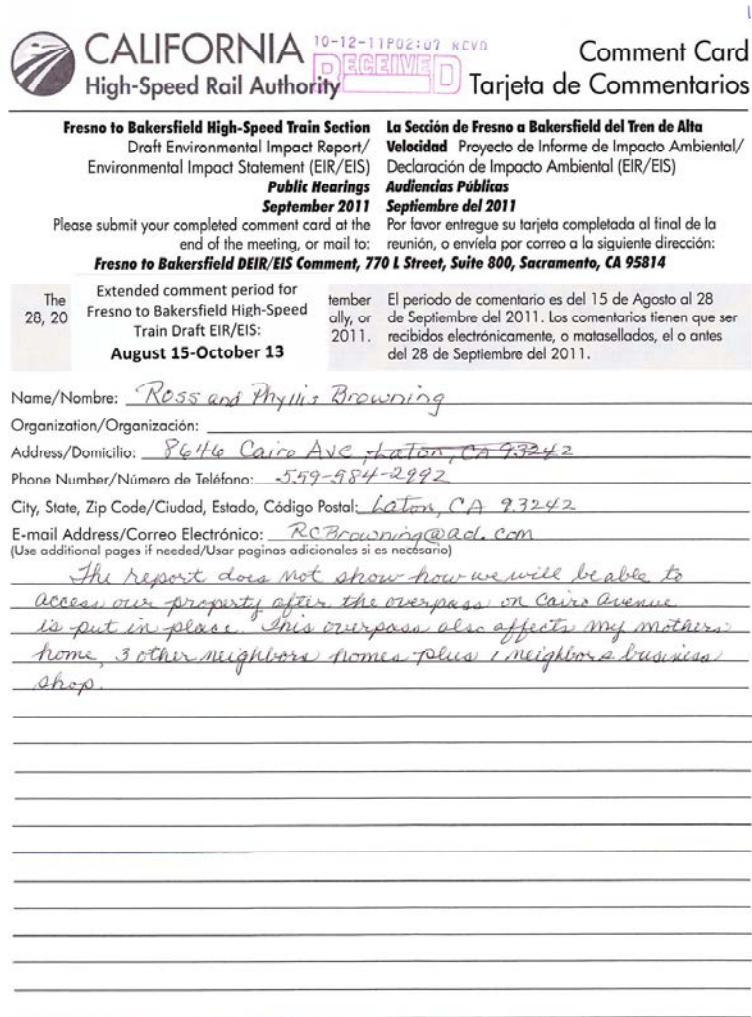 CALIFORNIA
High-Speed Rail Authority
10-12-11P02:07 RCVD
RECEIVED
Comment Card
Tarjeta de Commentarios
Fresno to Bakersfield High-Speed Train Section
Draft Environmental Impact Report/
Environmental Impact Statement (EIR/EIS)
Public Hearings
September 2011
Please submit your completed comment card at the
end of the meeting, or mail to:
La Sección de Fresno a Bakersfield del Tren de Alta
Velocidad Proyecto de Informe de Impacto Ambiental/
Declaración de Impacto Ambiental (EIR/EIS)
Audiencias Públicas
Septiembre del 2011
Por favor entregue su tarjeta completada al final de la
reunión, o envíela por correo a la siguiente dirección:
Fresno to Bakersfield DEIR/EIS Comment, 770 L Street, Suite 800, Sacramento, CA 95814
The
28, 20
Extended comment period for
Fresno to Bakersfield High-Speed
Train Draft EIR/EIS:
August 15-October 13
tember
ally, or
2011.
El periodo de comentario es del 15 de Agosto al 28
de Septiembre del 2011. Los comentarios tienen que ser
recibidos electrónicamente, o matasellados, el o antes
del 28 de Septiembre del 2011.
Name/Nombre: Ross and Phyllis Browning
Organization/Organización:
Address/Domicilio: 8646 Cairo Ave, Laton, CA 93242
Phone Number/Número de Teléfono: 559-584-2992
City, State, Zip Code/Ciudad, Estado, Código Postal: Laton, CA 93242
E-mail Address/Correo Electrónico: RCBrowning@aol.com
(Use additional pages if needed/Usar paginas adicionales si es necesario)
The report does not show how we will be able to
access our property after the overpass on Cairo Avenue
is put in place. This overpass also affects my mothers
home, 3 other neighbors homes plus 1 neighbors business
shop.